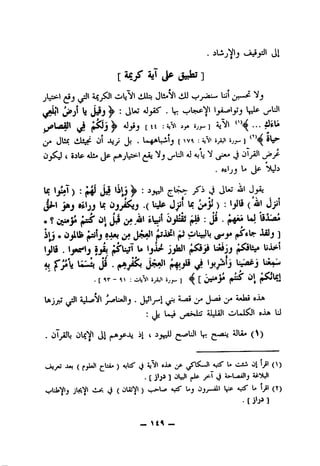 إلى التوقيف والإرشاد .
[ تطبيق على آية كريمة ]
ولا تحسبن أننا سنضرب لك الأمثال بتلك الآيات الكريمة التي وقع اختيار
الناس عليها وتواصفوا الإعجاب بها . كقوله تعالى : ﴿ وقيل يا أرض ابلعي
ماءك ... ﴾ الآية [ سورة هود الآية : ٤٤ ] وقوله ﴿ ولكم في القصاص
حياة ﴾(١) [ سورة البقرة الآية : ١٧٩ ] وأشباهها . بل نريد أن نجيئك بمثال من
عرض القرآن في معنى لا يأبه له الناس ولا يقع اختيارهم على مثله عادة ، ليكون
دليلاً على ما وراءه .
يقول الله تعالى في ذكر حجاج اليهود : ﴿ وإذا قيل لهم : ( آمنوا بما
أنزل الله ) قالوا : ( نؤمن بما أنزل علينا ). ويكفرون بما وراءه وهو الحق
مصدقاً لما معهم . قل : فلم تقتلون أنبياء الله من قبل إن كنتم مؤمنين ؟ •
ولقد جاءكم موسى بالبينات ثم اتخذتم العجل من بعده وأنتم ظالمون • وإذ
أخذنا ميثاقكم ورفعنا فوقكم الطور خذوا ما آتيناكم بقوة واسمعوا . قالوا
سمعنا وعصينا وأشربوا في قلوبهم العجل بكفرهم . قل بئسما يأمركم به
إيمانكم إن كنتم مؤمنين ﴾ [ سورة البقرة الآيات : ٩١ - ٩٣ ] .
هذه قطعة من فصل من قصة بني إسرائيل . والعناصر الأصلية التي تبرزها
لنا هذه الكلمات القليلة تتلخص فيما يلي :
(١) مقالة ينصح بها الناصح لليهود ، إذ يدعوهم إلى الإيمان بالقرآن .
(١) اقرأ إن شئت ما كتبه السكاكي عن هذه الآية في كتابه ( مفتاح العلوم ) بعد تعريف
البلاغة والفصاحة في آخر علم البيان [ دراز ] .
(٢) اقرأ ما كتبه عنها المفسرون وما كتبه صاحب ( الإتقان ) في بحث الإيجاز والإطناب
[ دراز ] .
— ١٤٩ —